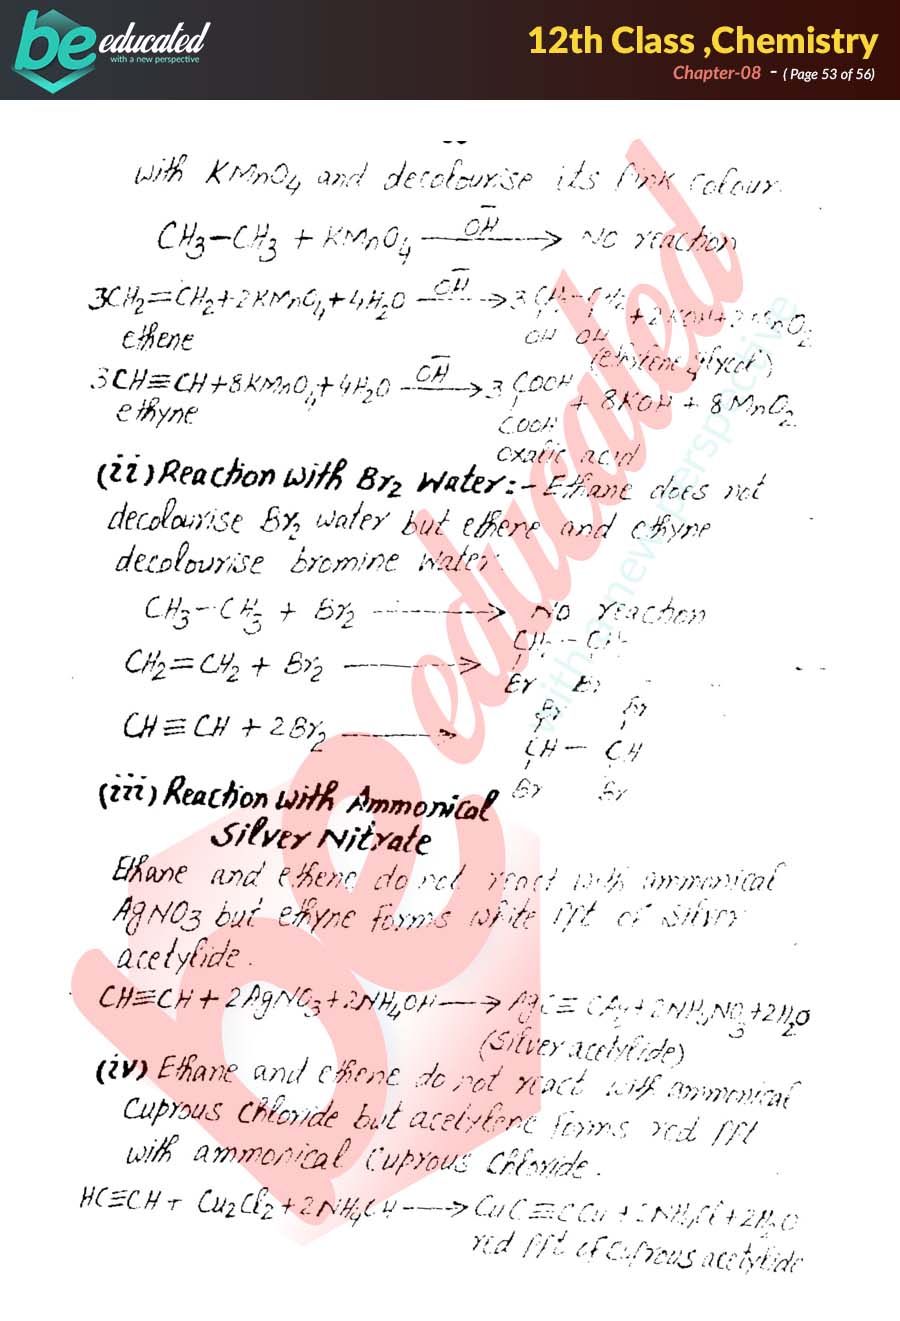 be educated
with a new perspective
12th Class ,Chemistry
Chapter-08 - ( Page 53 of 56)
with KMnO4 and decolourise its Pink colour.
CH3-CH3 + KMnO4 —OH⁻→ NO reaction
3CH2=CH2+2KMnO4+4H2O —OH⁻→ 3 CH2-CH2 + 2KOH+2MnO2
OH OH
ethene (ethylene glycol)
3CH≡CH+8KMnO4+4H2O —OH⁻→ 3 COOH + 8KOH + 8MnO2
ethyne COOH
oxalic acid
(ii) Reaction with Br2 Water:- Ethane does not
decolourise Br2 water but ethene and ethyne
decolourise bromine water.
CH3-CH3 + Br2 → NO reaction
CH2=CH2 + Br2 → CH2-CH2
Br Br
Br Br
CH≡CH + 2Br2 → CH-CH
Br Br
(iii) Reaction with Ammonical
Silver Nitrate
Ethane and ethene do not react with ammonical
AgNO3 but ethyne forms white PPt of Silver
acetylide.
CH≡CH + 2AgNO3+2NH4OH → AgC≡CAg+2NH4NO3+2H2O
(Silver acetylide)
(iv) Ethane and ethene do not react with ammonical
Cuprous Chloride but acetylene forms red PPt
with ammonical Cuprous Chloride.
HC≡CH + Cu2Cl2+2NH4OH → CuC≡CCu+2NH4Cl+2H2O
red PPt of Cuprous acetylide
be educated
with a new perspective